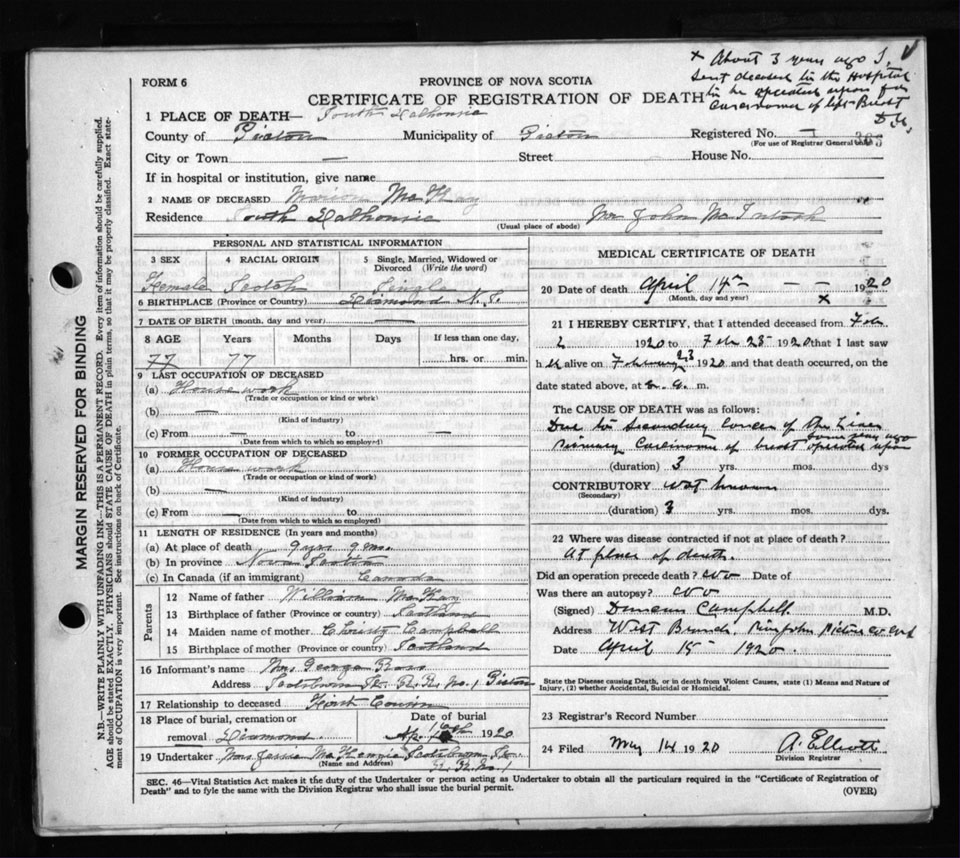 FORM 6
PROVINCE OF NOVA SCOTIA
CERTIFICATE OF REGISTRATION OF DEATH
x About 3 years ago I
sent deceased to the Hospital
to be operated upon for
Carcinoma of left Breast
D.C.
1 PLACE OF DEATH— South Dalhousie
County of Pictou Municipality of Pictou Registered No.
(For use of Registrar General only)
City or Town — Street House No.
If in hospital or institution, give name
2 NAME OF DECEASED Marion McKay
Residence South Dalhousie Mr John McIntosh
(Usual place of abode)
PERSONAL AND STATISTICAL INFORMATION
3 SEX 4 RACIAL ORIGIN 5 Single, Married, Widowed or Divorced (Write the word)
Female Scotch Single
6 BIRTHPLACE (Province or Country) Diamond N.S.
7 DATE OF BIRTH (month, day and year) —
8 AGE Years Months Days If less than one day,
77 77 hrs. or min.
9 LAST OCCUPATION OF DECEASED
(a) House work
(Trade or occupation or kind or work)
(b) —
(Kind of industry)
(c) From — to —
(Date from which to which so employed)
10 FORMER OCCUPATION OF DECEASED
(a) House work
(Trade or occupation or kind of work)
(b) —
(Kind of industry)
(c) From — to
(Date from which to which so employed)
11 LENGTH OF RESIDENCE (In years and months)
(a) At place of death 9 yrs 9 mo.
(b) In province Nova Scotia
(c) In Canada (if an immigrant) Canada
Parents
12 Name of father William McKay
13 Birthplace of father (Province or country) Scotland
14 Maiden name of mother Christy Campbell
15 Birthplace of mother (Province or country) Scotland
16 Informant's name Mrs George Ross
Address Scotsburn St. R.R. No. 1 Pictou
17 Relationship to deceased First Cousin
18 Place of burial, cremation or removal Diamond
Date of burial
Ap. 16th 1920
19 Undertaker Mrs Jessie McKenzie Scotsburn St.
(Name and Address) R.R. No. 1
MEDICAL CERTIFICATE OF DEATH
20 Date of death April 14th — — 1920
(Month, day and year) x
21 I HEREBY CERTIFY, that I attended deceased from Feb
2 1920 to Feb 23 1920 that I last saw
h alive on February 23 1920 and that death occurred, on the
date stated above, at 6. a. m.
The CAUSE OF DEATH was as follows:
Due to Secondary Cancer of the Liver
Primary Carcinoma of breast operated upon some years ago
(duration) 3 yrs. mos. dys
CONTRIBUTORY not known
(Secondary)
(duration) 3 yrs. mos. dys.
22 Where was disease contracted if not at place of death?
At place of death.
Did an operation precede death? No Date of
Was there an autopsy? No
(Signed) Duncan Campbell M.D.
Address West Branch, River John Pictou Co.
Date April 15 1920.
State the Disease causing Death, or in death from Violent Causes, state (1) Means and Nature of Injury, (2) whether Accidental, Suicidal or Homicidal.
23 Registrar's Record Number
24 Filed May 14 1920 A. Elliott
Division Registrar
SEC. 46—Vital Statistics Act makes it the duty of the Undertaker or person acting as Undertaker to obtain all the particulars required in the "Certificate of Registration of
Death" and to fyle the same with the Division Registrar who shall issue the burial permit. (OVER)
MARGIN RESERVED FOR BINDING
N.B.—WRITE PLAINLY WITH UNFADING INK—THIS IS A PERMANENT RECORD. Every item of information should be carefully supplied.
AGE should be stated EXACTLY. PHYSICIANS should STATE CAUSE OF DEATH in plain terms, so that it may be properly classified. Exact state-
ment of OCCUPATION is very important. See instructions on back of Certificate.